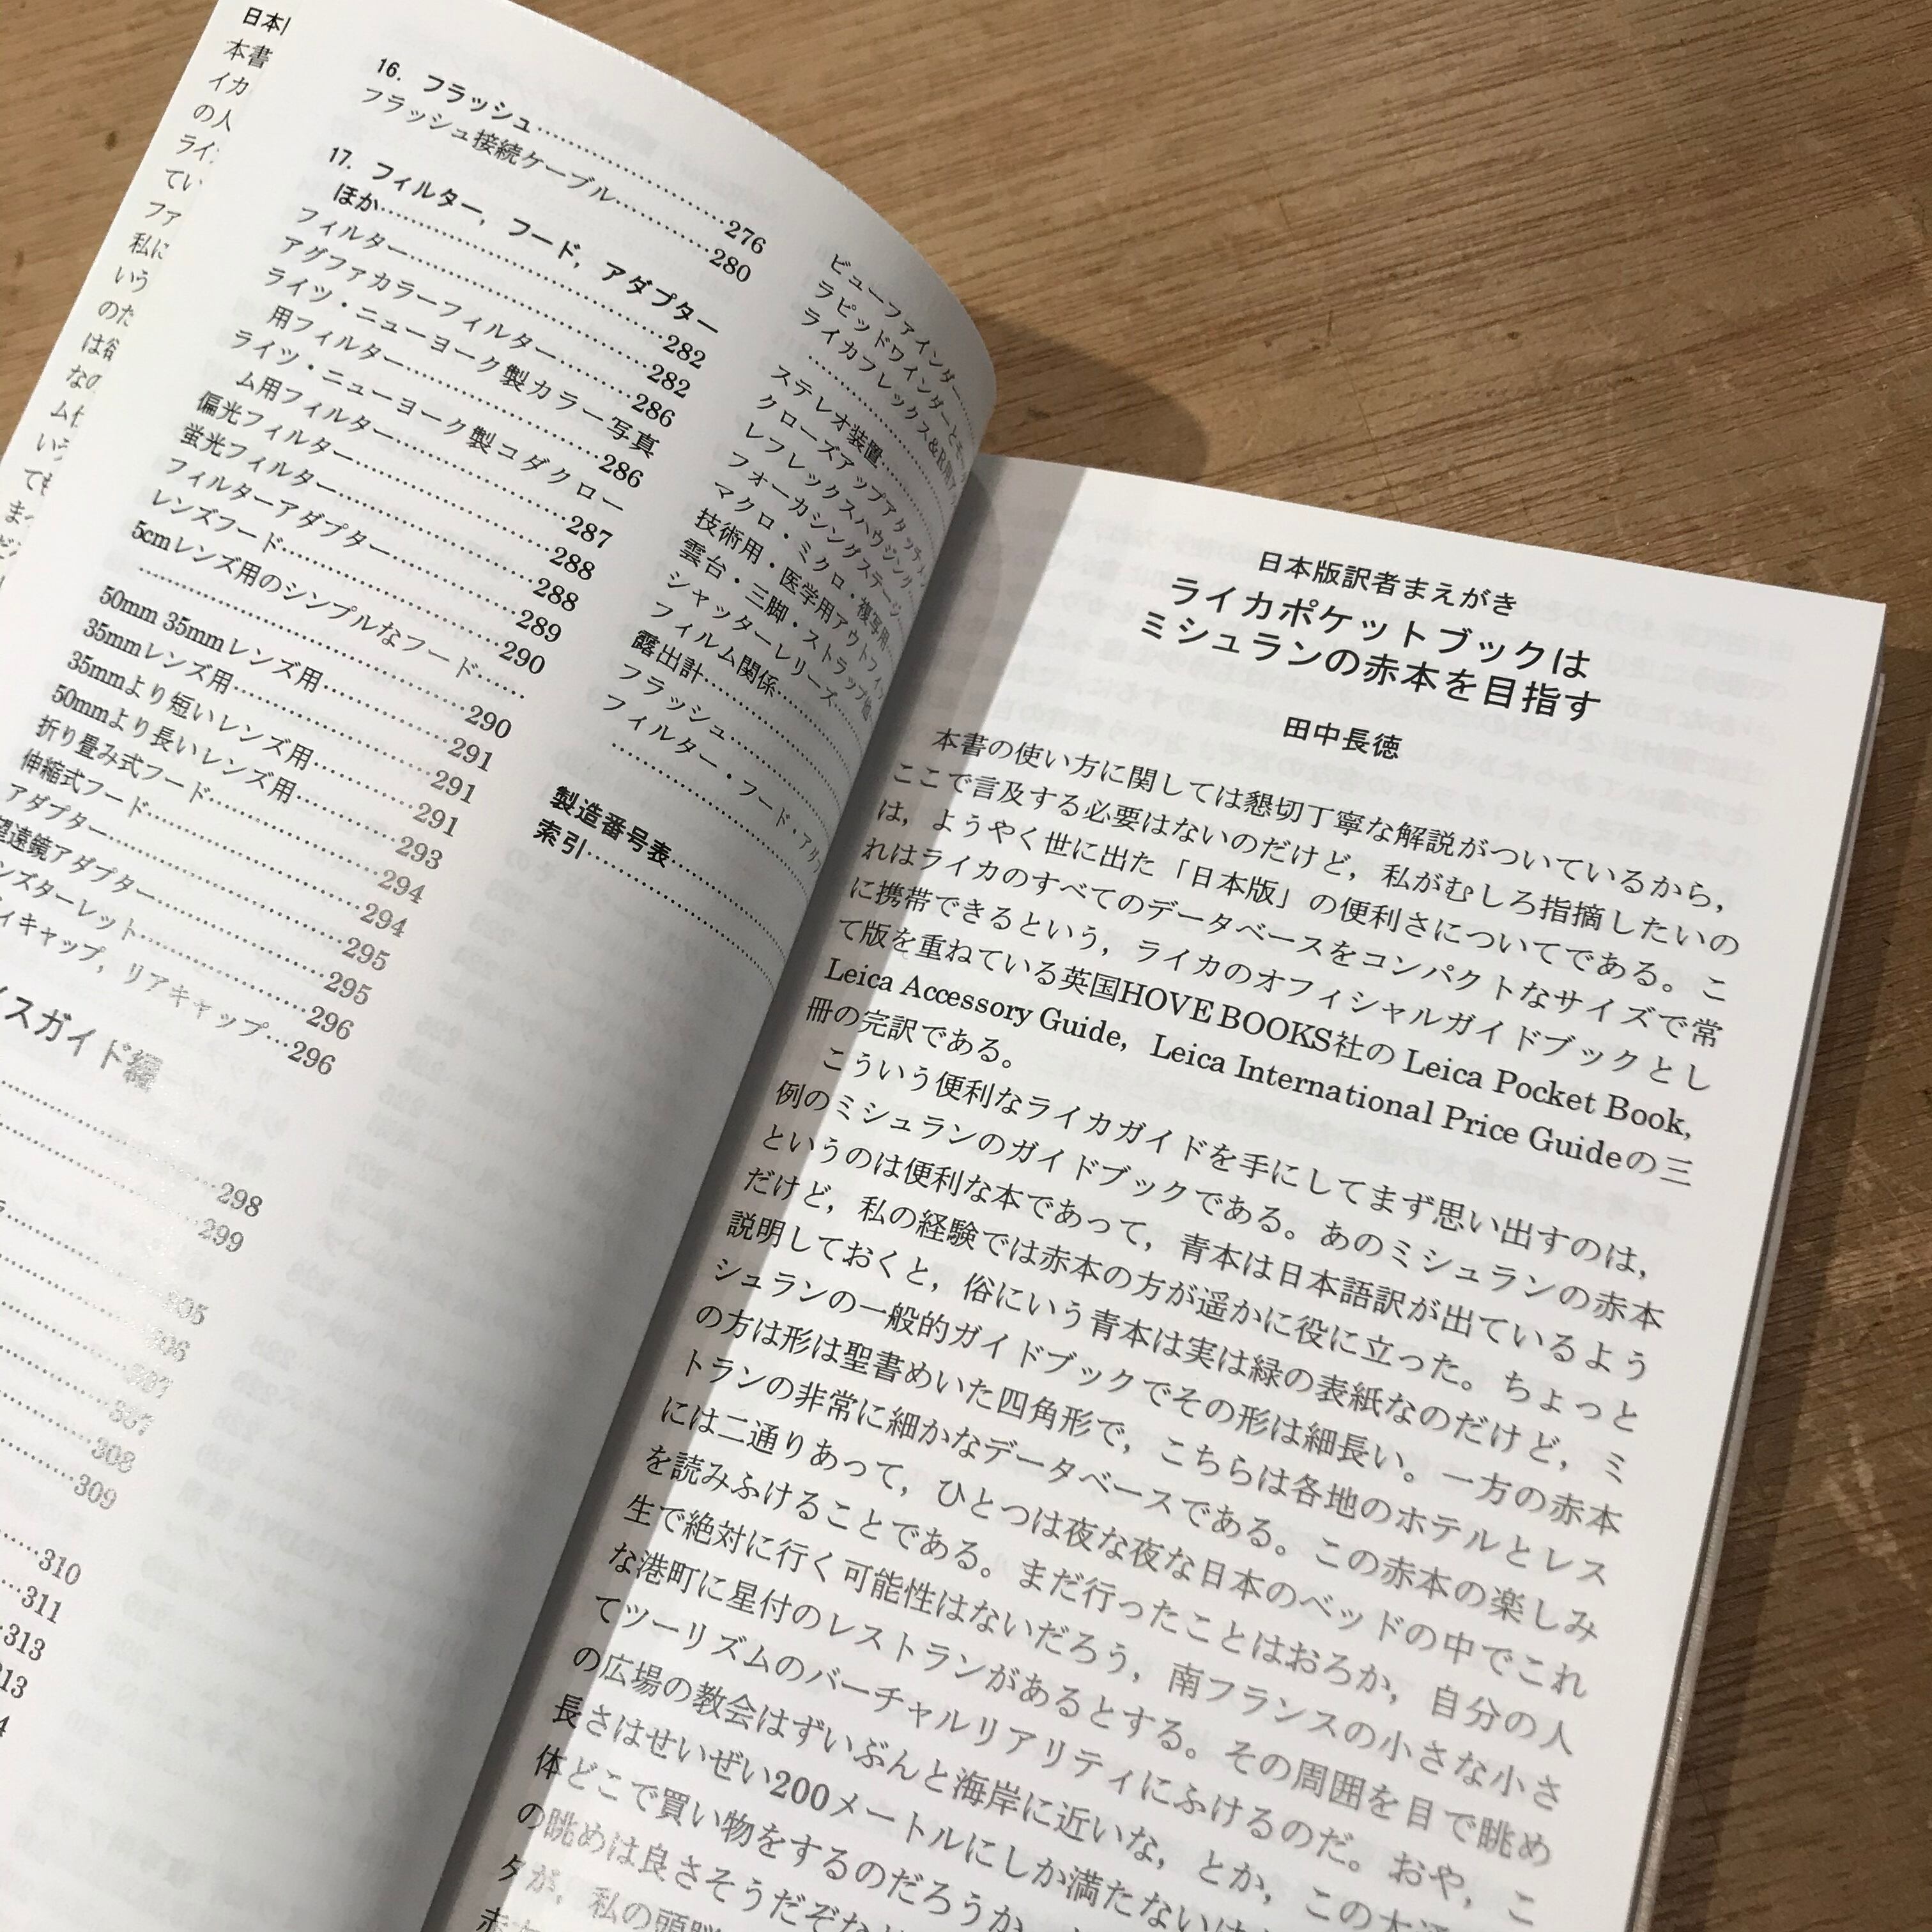 日本
本書
イカ
の人
ライ
てい
ファ
私に
いう
のた
なの
いう
16. フラッシュ……276
フラッシュ接続ケーブル……280
17. フィルター，フード，アダプター
ほか……282
フィルター……282
アグファカラーフィルター……286
ライツ・ニューヨーク製カラー写真
用フィルター……286
ライツ・ニューヨーク製コダクロー
ム用フィルター……287
偏光フィルター……288
蛍光フィルター……288
フィルターアダプター……289
レンズフード……290
5cmレンズ用のシンプルなフード……
……290
50mm 35mmレンズ用……291
35mmレンズ用……291
35mmより短いレンズ用……291
50mmより長いレンズ用……293
折り畳み式フード……294
伸縮式フード……294
アダプター……295
望遠鏡アダプター……295
ンズターレット……296
ィキャップ，リアキャップ…296
イスガイド編
298
299
305
306
307
307
308
309
310
311
313
313
ビューファインダー……
ラピッドワインダーとモー
ライカフレックス&R用
ステレオ装置……
クローズアップアタッチメン
レフレックスハウジング
フォーカシングステージ……
マクロ・ミクロ・複写用…
技術用・医学用アウトフィ
雲台・三脚・ストラップ他
シャッターレリーズ
フィルム関係……
露出計……
フラッシュ……
フィルター・フード・アダ
製造番号表……
索引……
日本版訳者まえがき
ライカポケットブックは
ミシュランの赤本を目指す
田中長徳
本書の使い方に関しては懇切丁寧な解説がついているから，
ここで言及する必要はないのだけど，私がむしろ指摘したいの
は，ようやく世に出た「日本版」の便利さについてである。こ
れはライカのすべてのデータベースをコンパクトなサイズで常
に携帯できるという，ライカのオフィシャルガイドブックとし
て版を重ねている英国HOVE BOOKS社の Leica Pocket Book,
Leica Accessory Guide，Leica International Price Guideの三
冊の完訳である。
こういう便利なライカガイドを手にしてまず思い出すのは，
例のミシュランのガイドブックである。あのミシュランの赤本
というのは便利な本であって，青本は日本語訳が出ているよう
だけど，私の経験では赤本の方が遥かに役に立った。ちょっと
説明しておくと，俗にいう青本は実は緑の表紙なのだけど，ミ
シュランの一般的ガイドブックでその形は細長い。一方の赤本
の方は形は聖書めいた四角形で，こちらは各地のホテルとレス
トランの非常に細かなデータベースである。この赤本の楽しみ
には二通りあって，ひとつは夜な夜な日本のベッドの中でこれ
を読みふけることである。まだ行ったことはおろか，自分の人
生で絶対に行く可能性はないだろう，南フランスの小さな小さ
な港町に星付のレストランがあるとする。その周囲を目で眺め
てツーリズムのバーチャルリアリティにふけるのだ。おや，こ
の広場の教会はずいぶんと海岸に近いな，とか，この大通
長さはせいぜい200メートルにしか満たない
体どこで買い物をするのだろうか
の眺めは良さそうだぞな
タが，私の頭脳